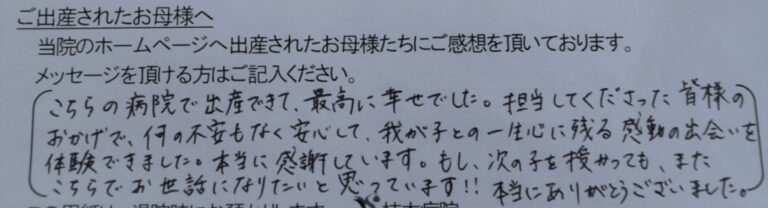 ご出産されたお母様へ
当院のホームページへ出産されたお母様たちにご感想を頂いております。
メッセージを頂ける方はご記入ください。
こちらの病院で出産できて、最高に幸せでした。担当してくださった皆様の
おかげで、何の不安もなく安心して、我が子との一生心に残る感動の出会いを
体験できました。本当に感謝しています。もし、次の子を授かっても、また
こちらでお世話になりたいと思っています!!本当にありがとうございました。